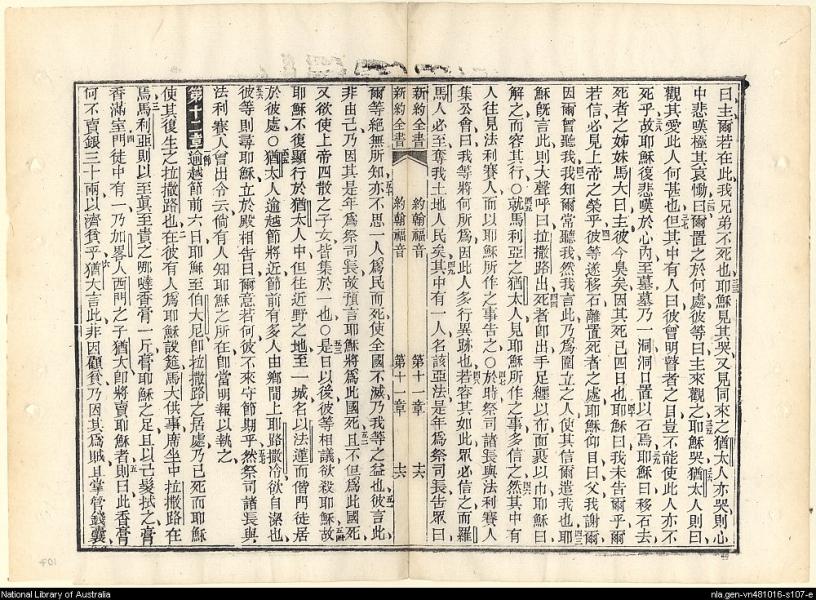 曰主爾若在此我兄弟不死也耶穌見其哭又見同來之猶太人亦哭則心
中悲嘆極其哀慟曰爾置之於何處彼等曰主來觀之耶穌哭猶太人則曰
觀其愛此人何甚也但其中有人曰彼曾明瞽者之目豈不能使此人亦不
死乎故耶穌復悲嘆於心內至墓墓乃一洞洞口置以石焉耶穌曰移石去
死者之姊妹馬大曰主彼今臭矣因其死已四日也耶穌曰我未告爾乎爾
若信必見上帝之榮乎彼等遂移石離置死者之處耶穌仰目曰父我謝爾
因爾曾聽我我知爾常聽我然我言此乃為圍立之人使其信爾遣我也耶
穌既言此則大聲呼曰拉撒路出死者卽出手足纏以布面裹以巾耶穌曰
解之而容其行○就馬利亞之猶太人見耶穌所作之事多信之然其中有
人往見法利賽人而以耶穌所作之事告之○於時祭司諸長與法利賽人
集公會曰我等將何所為因此人多行異跡也若容其如此眾必信之而羅
馬人必至奪我土地人民矣其中有一人名該亞法是年為祭司長告眾曰
新約全書 約翰福音 第十一章 十六
新約全書 約翰福音 第十一章 十六
爾等絕無所知亦不思一人為民而死使全國不滅乃我等之益也彼言此
非由己乃因其是年為祭司長故預言耶穌將為此國死且不但為此國死
又欲使上帝四散之子女皆集於一也○是日以後彼等相議欲殺耶穌故
耶穌不復顯行於猶太人中但往近野之地至一城名以法蓮而偕門徒居
於彼處○猶太人逾越節將近節前有多人由鄉間上耶路撒冷欲自潔也
彼等則尋耶穌立於殿相告曰爾意若何彼不來守節期乎然祭司諸長與
法利賽人曾出令云倘有人知耶穌之所在卽當明報以執之
第十二章 逾越節前六日耶穌至伯大尼卽拉撒路之居處乃已死而耶穌
使其復生之拉撒路也在彼有人為耶穌設筵馬大供事席坐中拉撒路在
焉馬利亞則以至眞至貴之哪噠香膏一斤膏耶穌之足且以己髮拭之膏
香滿室門徒中有一乃加畧人西門之子猶大卽將賣耶穌者則曰此香膏
何不賣銀三十兩以濟貧乎猶大言此非因顧貧乃因其為賊且掌管錢囊
401
National Library of Australia
nla.gen-vn481016-s107-e